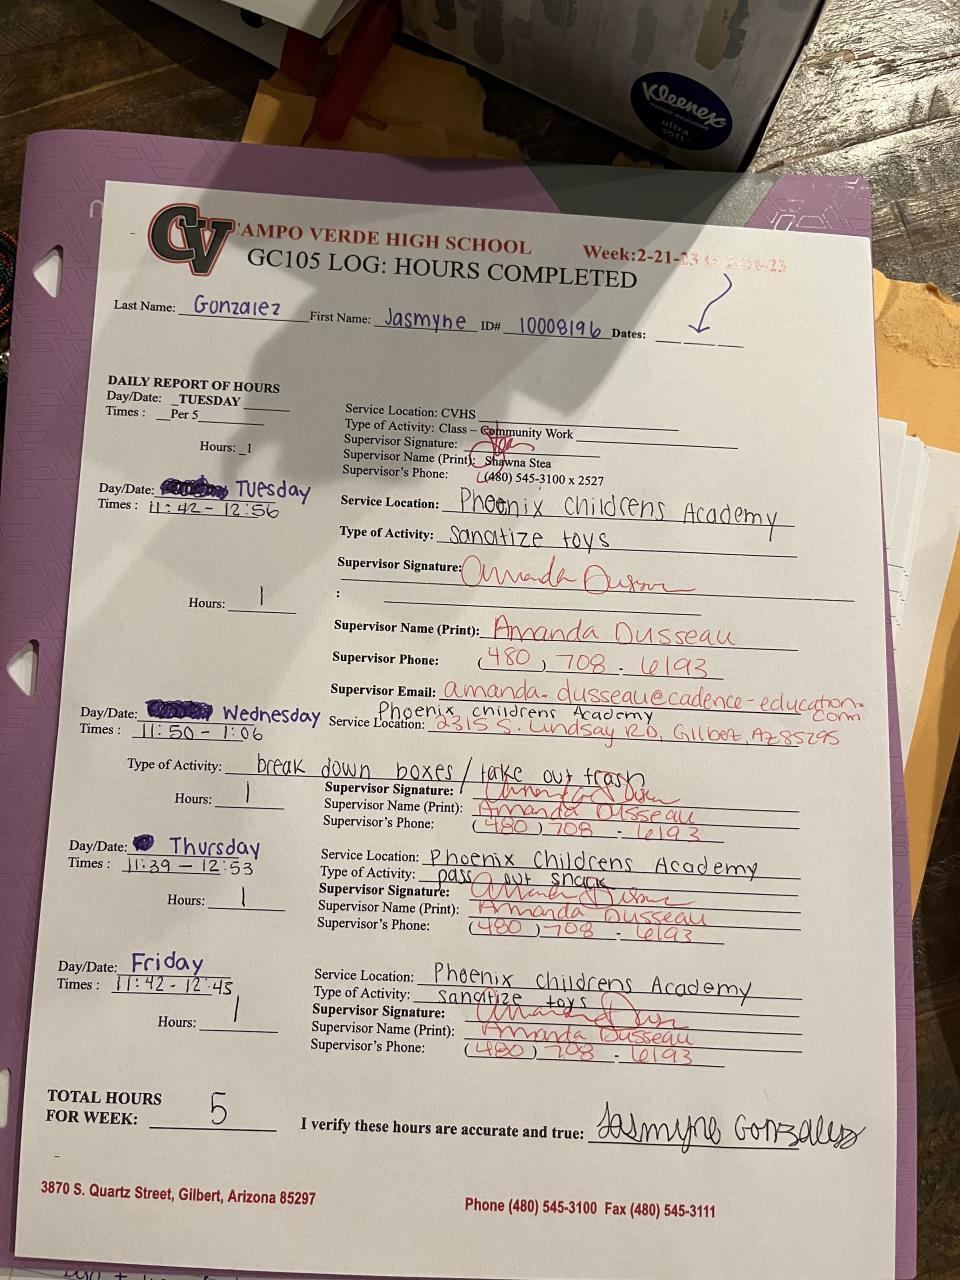 Kleenex
ultra
soft
CV
CAMPO VERDE HIGH SCHOOL
Week:2-21-23
GC105 LOG: HOURS COMPLETED
Last Name: Gonzalez First Name: Jasmyne ID# 10008196 Dates:
DAILY REPORT OF HOURS
Day/Date: TUESDAY
Times : Per 5
Hours: 1
Service Location: CVHS
Type of Activity: Class – Community Work
Supervisor Signature:
Supervisor Name (Print): Shawna Stea
Supervisor's Phone: (480) 545-3100 x 2527
Day/Date: Tuesday
Times : 11:42 - 12:56
Hours: 1
Service Location: Phoenix childrens Academy
Type of Activity: sanatize toys
Supervisor Signature: Amanda Dusseau
:
Supervisor Name (Print): Amanda Dusseau
Supervisor Phone: (480) 708 - 6193
Supervisor Email: amanda.dusseau@cadence-education.com
Day/Date: Wednesday
Times : 11:50 - 1:06
Phoenix childrens Academy
Service Location: 2315 S. Lindsay RD, Gilbert, AZ 85295
Type of Activity: break down boxes / take out trash
Hours: 1
Supervisor Signature: Amanda Dusseau
Supervisor Name (Print): Amanda Dusseau
Supervisor's Phone: (480) 708 - 6193
Day/Date: Thursday
Times : 11:39 - 12:53
Hours: 1
Service Location: Phoenix childrens Academy
Type of Activity: pass out snack
Supervisor Signature: Amanda Dusseau
Supervisor Name (Print): Amanda Dusseau
Supervisor's Phone: (480) 708 - 6193
Day/Date: Friday
Times : 11:42 - 12:45
Hours: 1
Service Location: Phoenix childrens Academy
Type of Activity: sanatize toys
Supervisor Signature: Amanda Dusseau
Supervisor Name (Print): Amanda Dusseau
Supervisor's Phone: (480) 708 - 6193
TOTAL HOURS
FOR WEEK: 5
I verify these hours are accurate and true: Jasmyne Gonzalez
3870 S. Quartz Street, Gilbert, Arizona 85297
Phone (480) 545-3100 Fax (480) 545-3111